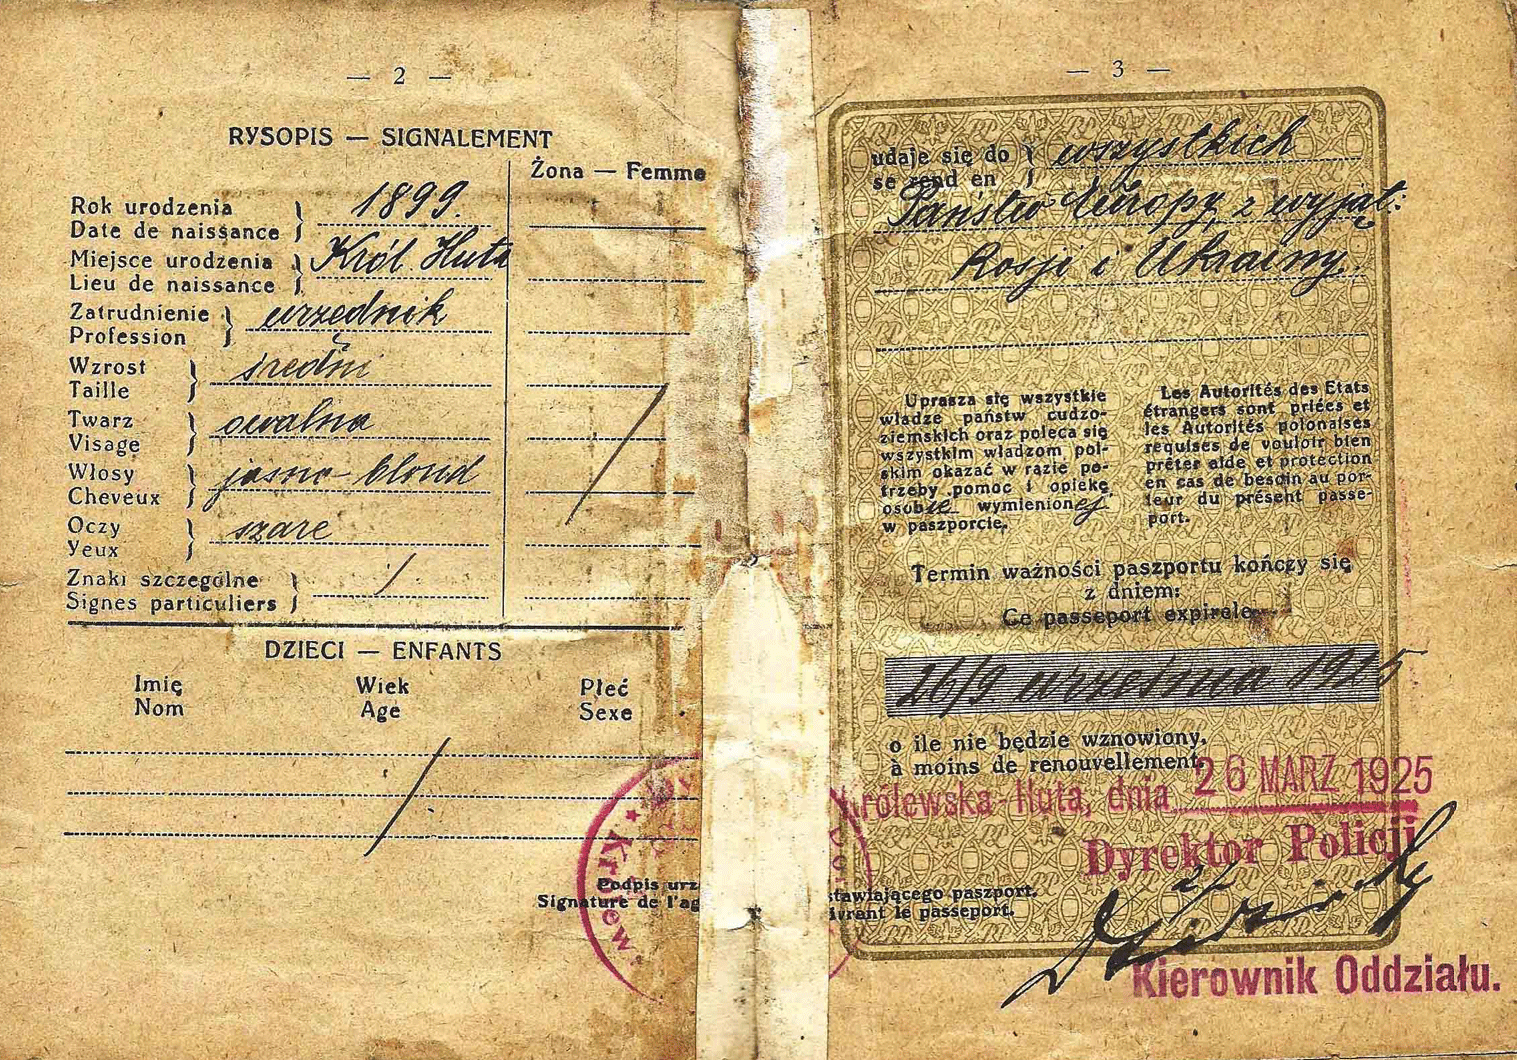 — 2 —
RYSOPIS — SIGNALEMENT
Żona — Femme
Rok urodzenia
Date de naissance
1899.
Miejsce urodzenia
Lieu de naissance
Król. Huta
Zatrudnienie
Profession
urzednik
Wzrost
Taille
średni
Twarz
Visage
owalna
Włosy
Cheveux
jasno-blond
Oczy
Yeux
szare
Znaki szczególne
Signes particuliers
DZIECI — ENFANTS
Imię
Nom
Wiek
Age
Płeć
Sexe
Podpis urz
Signature de l'ag
★ Królew
— 3 —
udaje się do
se rend en
wszystkich
Państw Europy z wyjąt.:
Rosji i Ukrainy.
Uprasza się wszystkie
władze państw cudzo-
ziemskich oraz poleca się
wszystkim władzom pol-
skim okazać w razie po-
trzeby pomoc i opiekę
osobie wymienionej
w paszporcie.
Les Autorités des Etats
étrangers sont priées et
les Autorités polonaises
requises de vouloir bien
prêter aide et protection
en cas de besoin au por-
teur du présent passe-
port.
Termin ważności paszportu kończy się
z dniem:
Ce passeport expirele
26/9 września 1925
o ile nie będzie wznowiony.
à moins de renouvellement.
Królewska-Huta, dnia 26 MARZ 1925
Dyrektor Policji
stawiającego paszport.
ivrant le passeport.
Kierownik Oddziału.